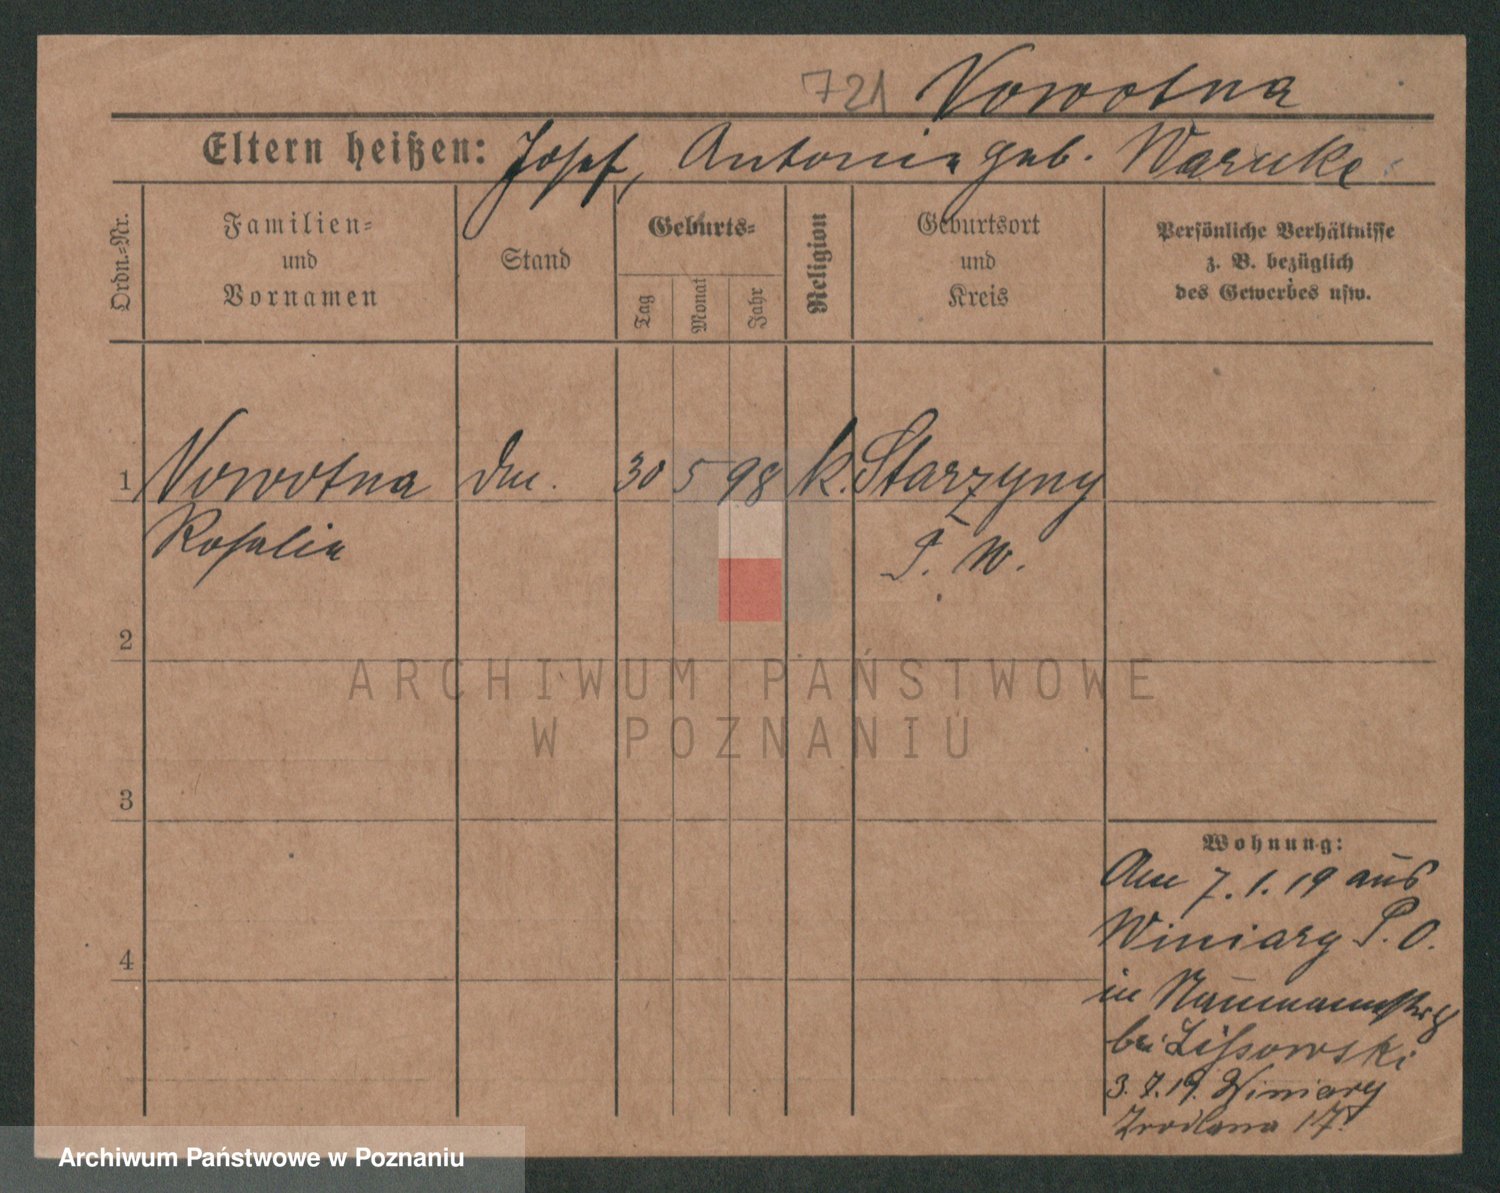 721 Nowotna
Eltern heißen: Josef, Antonie geb. Warnke
Ordn.-Nr.
Familien-
und
Vornamen
Stand
Geburts-
Tag
Monat
Jahr
Religion
Geburtsort
und
Kreis
Persönliche Verhältnisse
z. B. bezüglich
des Gewerbes usw.
1 Nowotna 30 5 98 k. Starzyny
Rosalie P. W.
2
3
4
Wohnung:
Am 7.1.19 aus
Winiary P. O.
in Naumannstr
bei Lissowski
3.7.19. Winiary
17.
ARCHIWUM PAŃSTWOWE
W POZNANIU
Archiwum Państwowe w Poznaniu